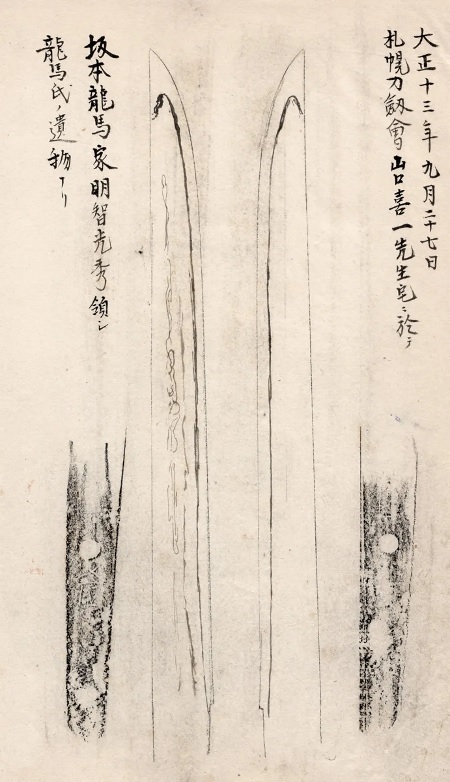 大正十三年九月二十七日
札幌刀劔會山口喜一先生宅ニ於テ
坂本龍馬家明智光秀領シ
龍馬氏ノ遺物ナリ